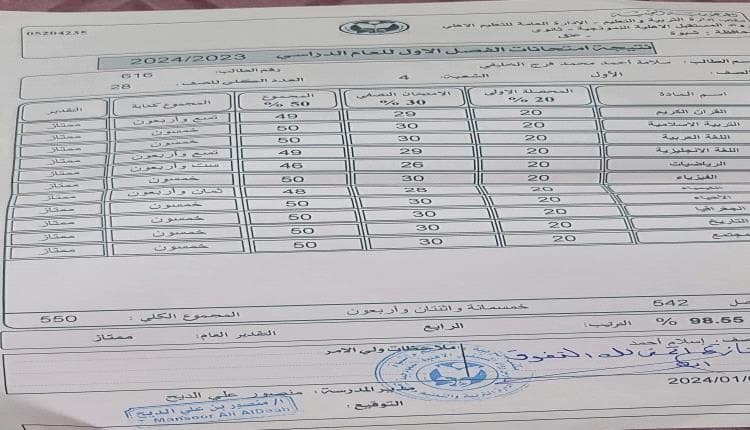 05204235
ـة التربية والتعليم - الإدارة العامة للتعليم الأهلي
المستقبل الأهلية النموذجية - ثانوي
محافظة : شبوة
نتيجة امتحانات الفصل الأول للعام الدراسي 2024/2023
اسم الطالب: سلامة احمد محمد فرج الخليفي رقم الطالب: 616
الصف: الأول الشعبة: 4 العدد الكلي للصف: 28
اسم المادة المحصلة الأولى 20 % الامتحان النصفي 30 % المجموع 50 % المجموع كتابة التقدير
القرآن الكريم 20 29 49 تسع وأربعون ممتاز
التربية الإسلامية 20 30 50 خمسون ممتاز
اللغة العربية 20 30 50 خمسون ممتاز
اللغة الإنجليزية 20 29 49 تسع وأربعون ممتاز
الرياضيات 20 26 46 ست وأربعون ممتاز
الفيزياء 20 30 50 خمسون ممتاز
الكيمياء 20 28 48 ثمان وأربعون ممتاز
الأحياء 20 30 50 خمسون ممتاز
الجغرافيا 20 30 50 خمسون ممتاز
التاريخ 20 30 50 خمسون ممتاز
مجتمع 20 30 50 خمسون ممتاز
542 خمسمائة واثنتان وأربعون المجموع الكلي : 550
98.55 % الترتيب: الرابع التقدير العام: ممتاز
إسلام أحمد ملاحظات ولي الأمر
مدير المدرسة : منصور علي الديح
2024/01/0 التوقيع :
أ/ منصور بن علي الديح
Mansoor Ali AlDaah